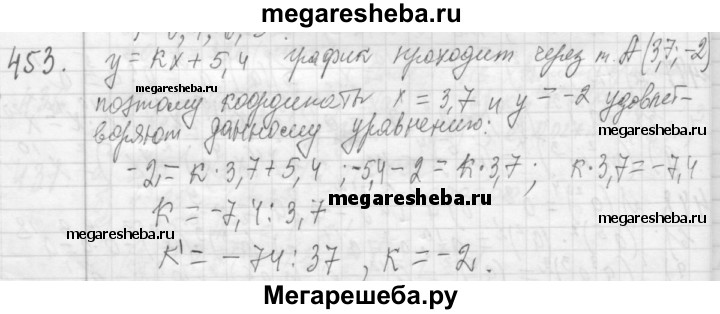 megaresheba.ru
453. y = кx + 5,4 график проходит через т. А(3,7; -2)
megaresheba.ru
поэтому координаты x = 3,7 и y = -2 удовлет-
воряют данному уравнению:
megaresheba.ru
-2 = к · 3,7 + 5,4 ; -5,4 - 2 = к · 3,7 ; к · 3,7 = -7,4
megaresheba.ru
к = -7,4 : 3,7
megaresheba.ru
к = -74 : 37 , к = -2.
megaresheba.ru
megaresheba.ru
Мегарешеба.ру